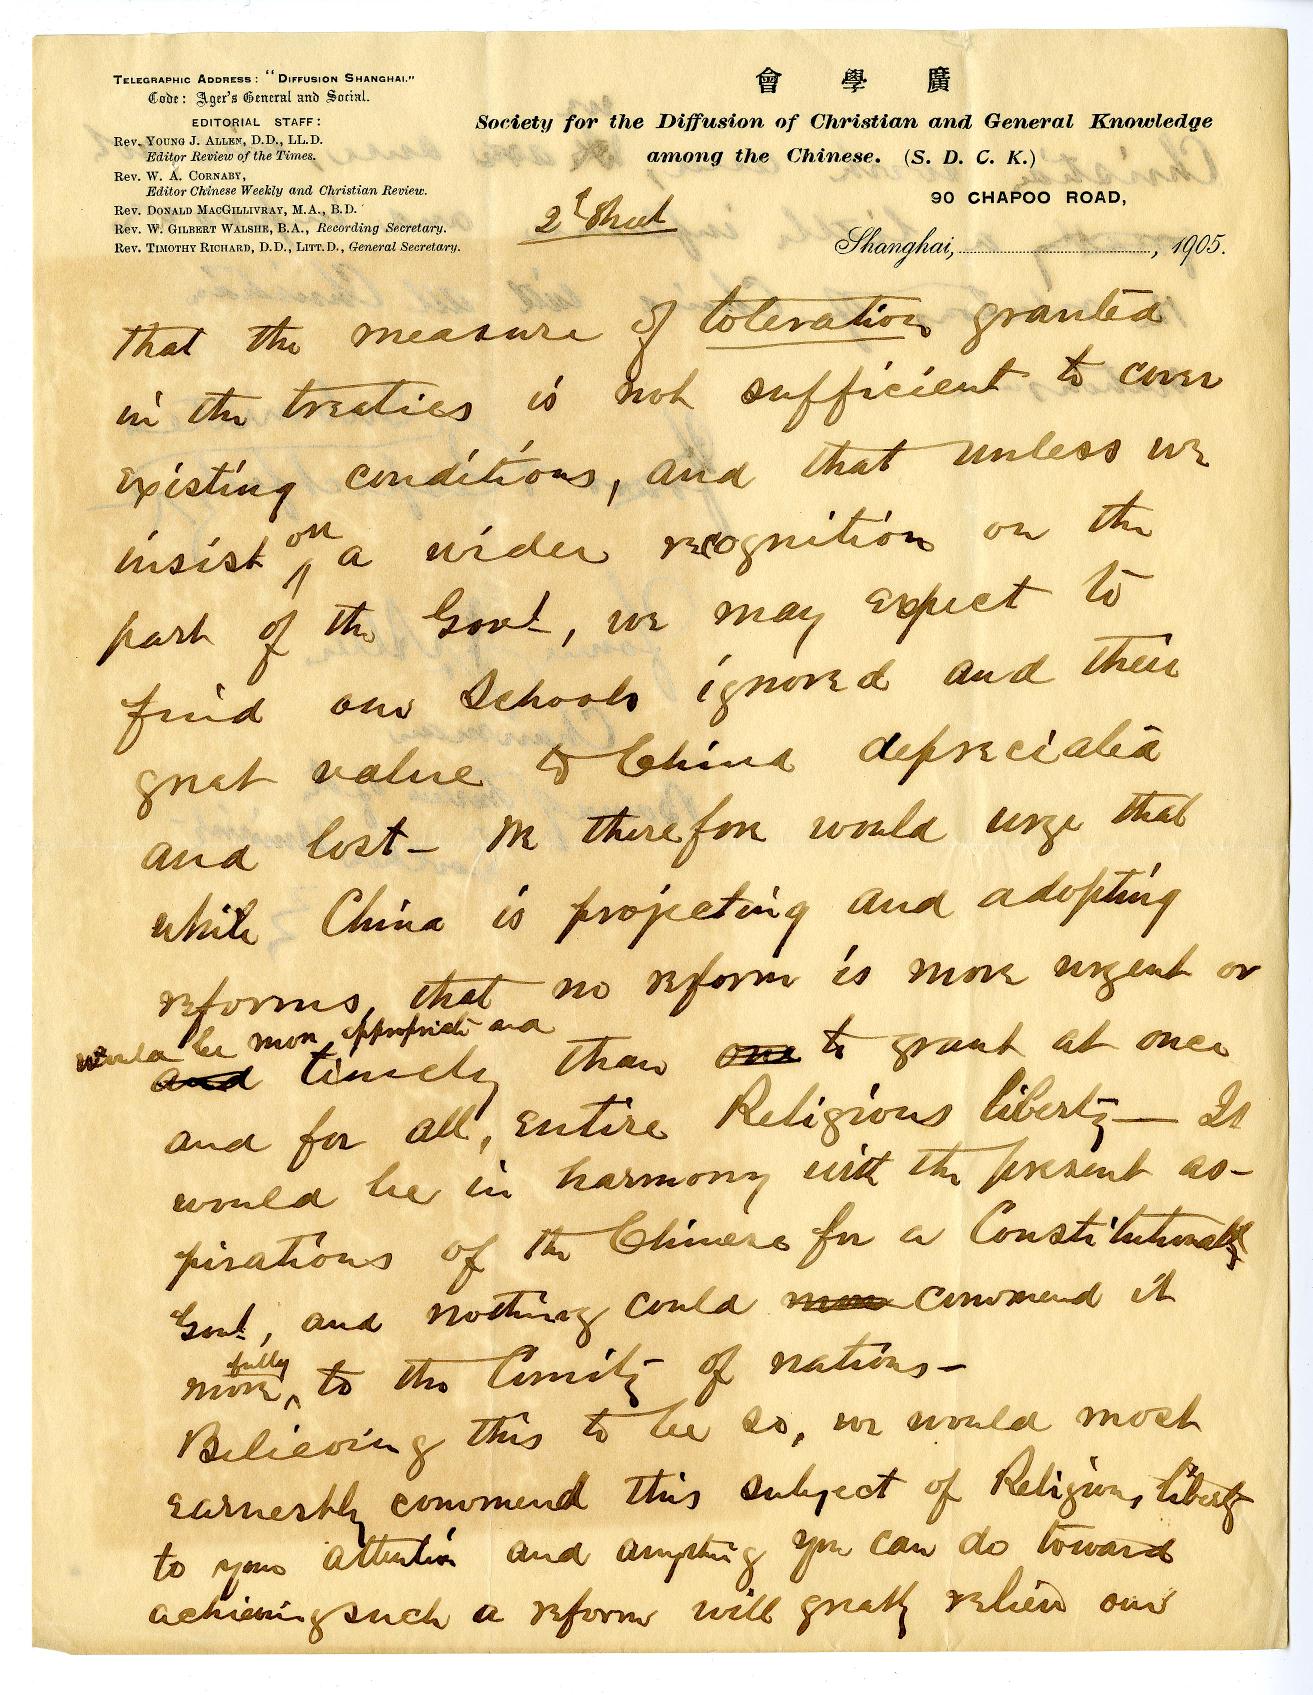 TELEGRAPHIC ADDRESS: "DIFFUSION SHANGHAI."
Code: Ager's General and Social.
EDITORIAL STAFF:
Rev. YOUNG J. ALLEN, D.D., LL.D.
Editor Review of the Times.
Rev. W. A. CORNABY,
Editor Chinese Weekly and Christian Review.
Rev. DONALD MACGILLIVRAY, M.A., B.D.
Rev. W. GILBERT WALSHE, B.A., Recording Secretary.
Rev. TIMOTHY RICHARD, D.D., LITT.D., General Secretary.
會 學 廣
Society for the Diffusion of Christian and General Knowledge
among the Chinese. (S. D. C. K.)
90 CHAPOO ROAD,
2d Sheet
Shanghai, , 1905.
that the measure of toleration granted
in the treaties is not sufficient to cover
existing conditions, and that unless we
insist on a wider recognition on the
part of the Govt, we may expect to
find our Schools ignored and their
great value to China depreciated
and lost— We therefore would urge that
while China is projecting and adopting
reforms, that no reform is more urgent or
would be more appropriate and
and timely than one to grant at once
and for all, entire Religious liberty— It
would be in harmony with the present as-
pirations of the Chinese for a Constitutional
Govt, and nothing could more commend it
more fully to the Comity of nations—
Believing this to be so, we would most
earnestly commend this subject of Religious liberty
to your attention and anything you can do toward
achieving such a reform will greatly relieve our